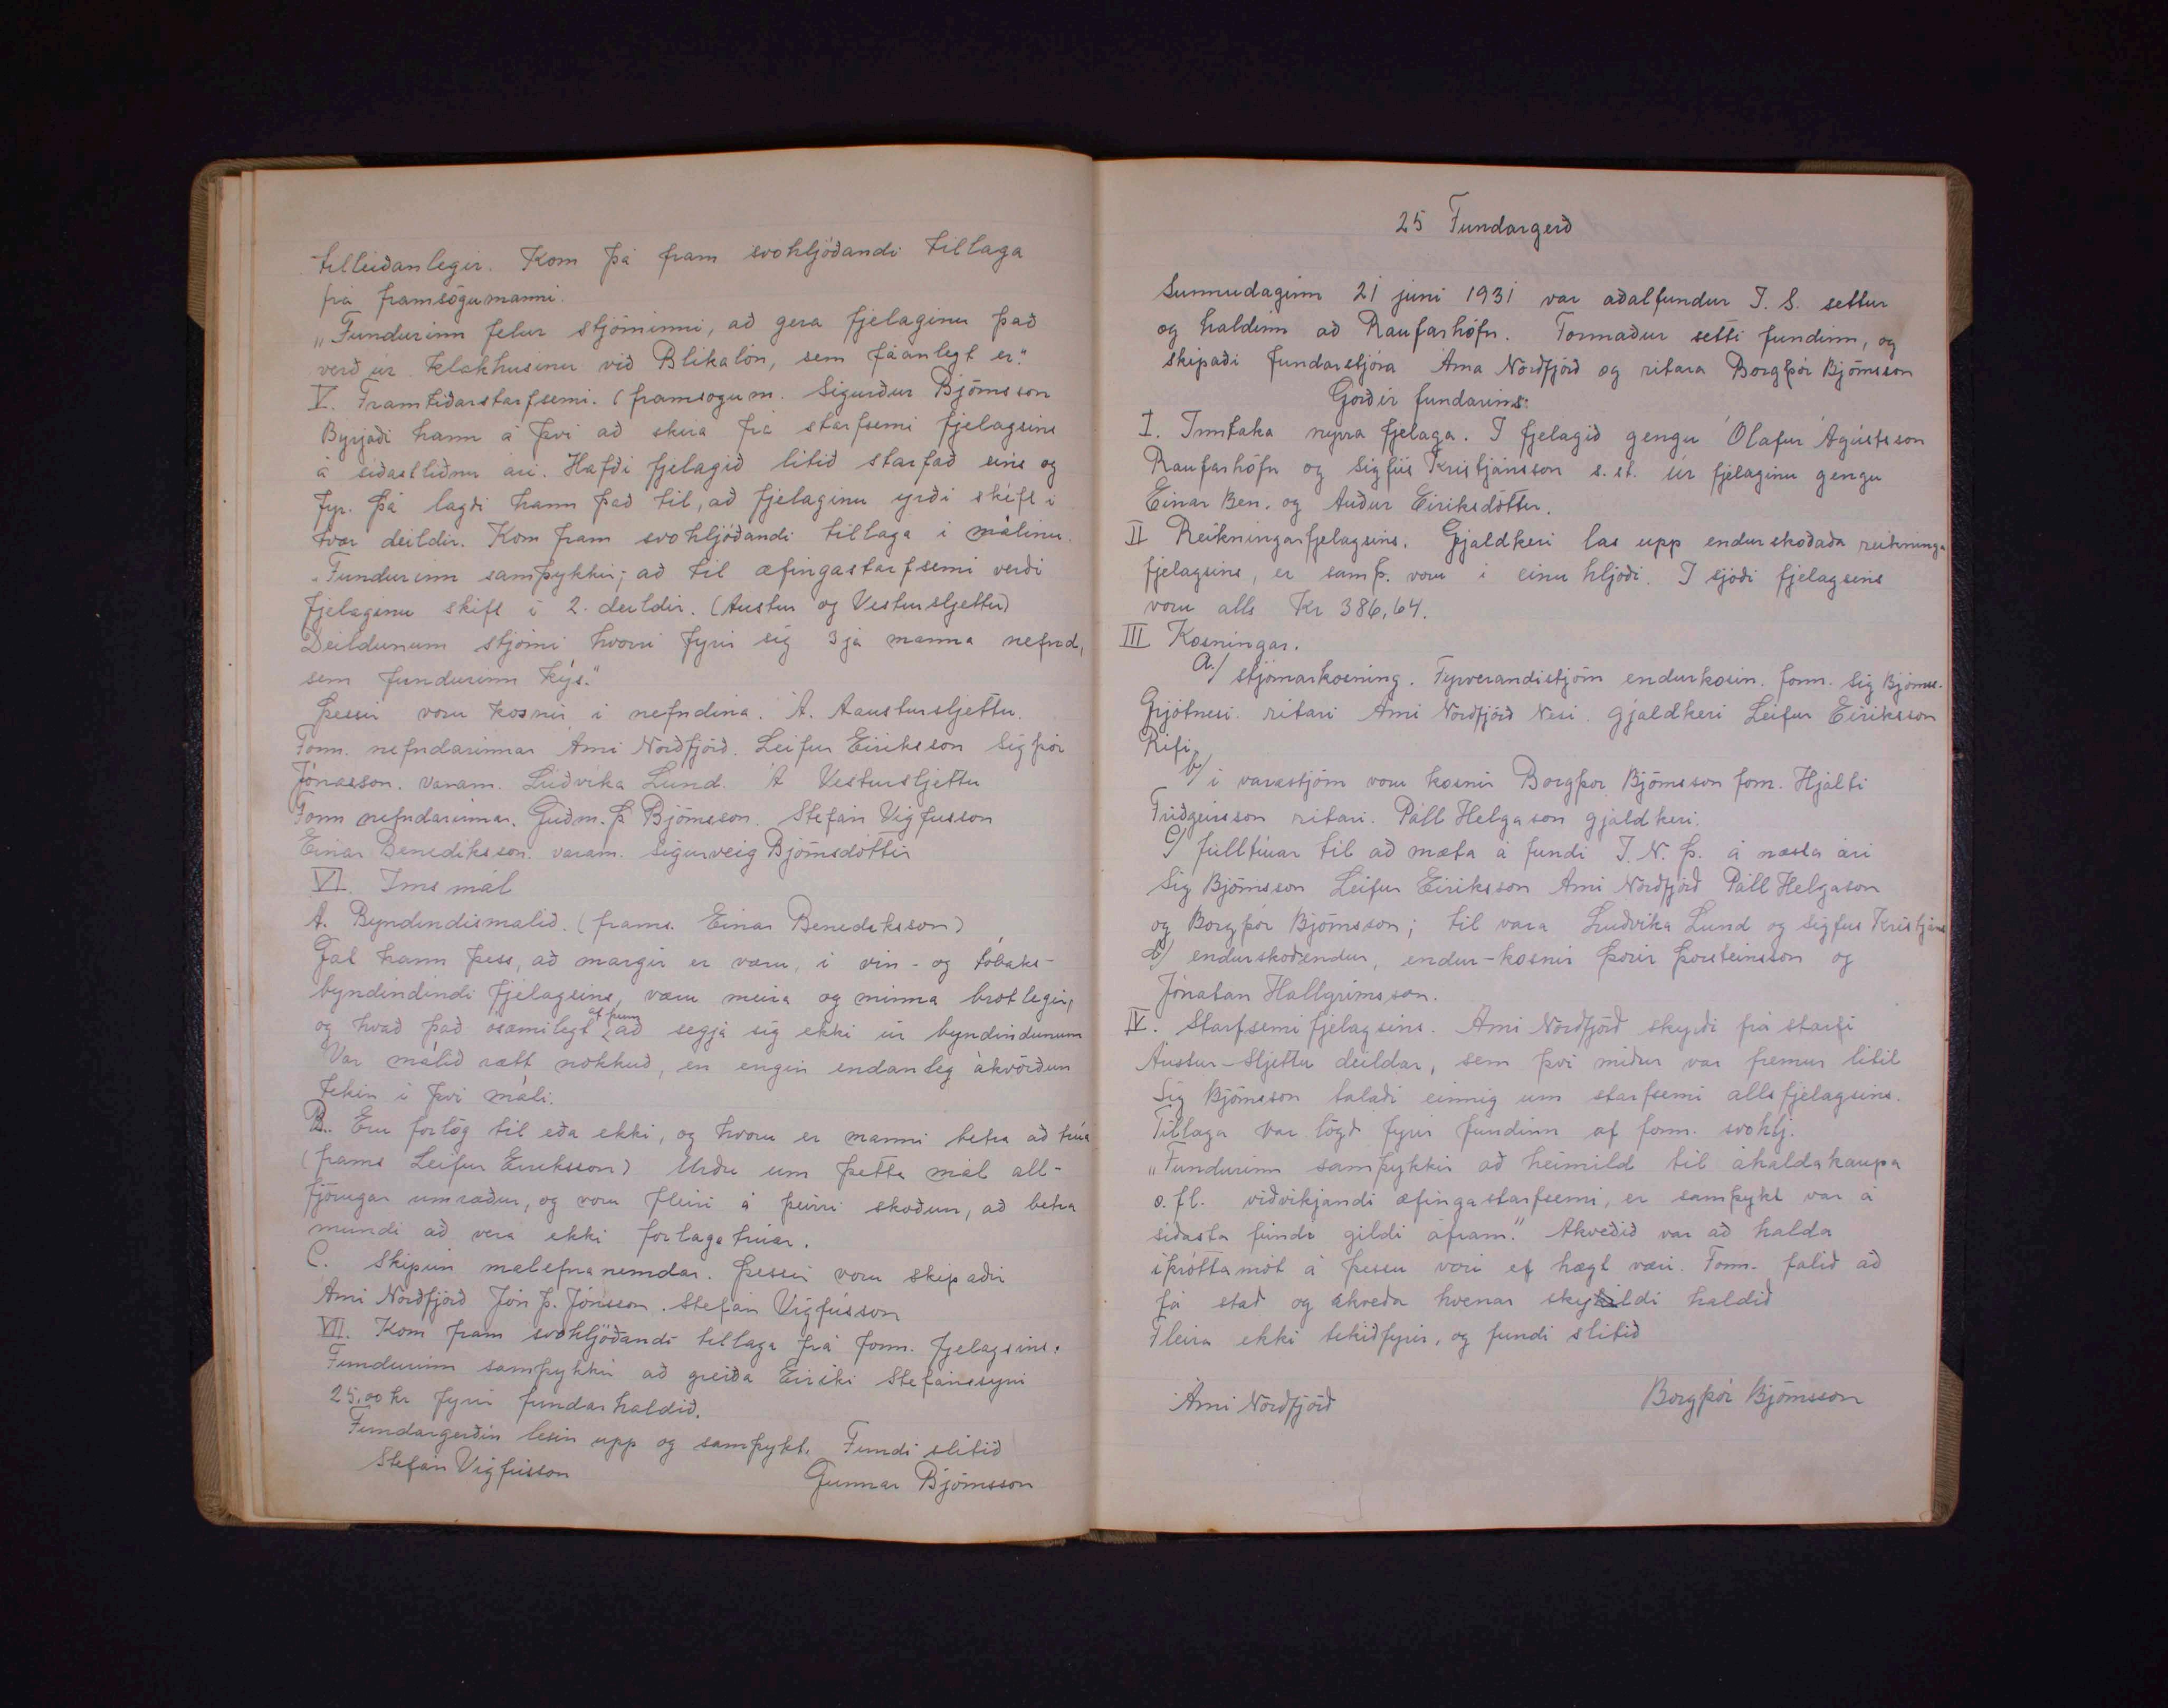 tilleiðanlegir. Kom þá fram svohljóðandi tillaga
frá framsögumanni.
„Fundurinn felur stjórninni, að gera fjelaginu það
verð úr klakhusinu við Blikalón, sem fáanlegt er."
V. Framtiðarstarfsemi. (framsögum. Sigurður Björnsson
Byrjaði hann á því að skira frá starfsemi fjelagsins
á siðastliðnu ári. Hafði fjelagið litið starfað eins og
fyr. Þá lagði hann það til, að fjelaginu yrði skift i
tvær deildir. Kom fram svohljóðandi tillaga i málinu.
„Fundurinn samþykkir, að til æfingastarfsemi verði
fjelaginu skift i 2. deildir. (Austur og Vestursljettu)
Deildunum stjórni hvorri fyrir sig 3ja manna nefnd,
sem fundurinn kýs."
Þessir voru kosnir i nefndina. Á. Aaustursljettu.
Form. nefndarinnar Árni Norðfjörð. Leifur Eiriksson Sigþór
Jónasson. varam. Lúðvika Lund. Á Vestursljettu
Form nefndarinnar. Guðm. Þ Björnsson. Stefán Vigfusson
Einar Benediksson. varam. Sigurveig Björnsdóttir
VI. Imsmál
A. Byndindismalið. (frams. Einar Benediksson)
Gat hann þess, að margir er væru, i vin- og tóbaks-
byndindindi fjelagsins, væru meira og minna brotlegir,
og hvað það ósæmilegt af þeim að segja sig ekki úr byndindunum
Var málið rætt nokkuð, en engin endanleg ákvörðun
tekin i því máli.
B. Eru forlög til eða ekki, og hvoru er manni betra að trúa
(frams Leifur Eiriksson) Urðu um þetta mál all-
fjörugar umræður, og voru fleiri á þeirri skoðun, að betra
mundi að vera ekki forlagatrúar.
C. Skipun malefnanemdar. Þessir voru skipaðir
Arni Norðfjörð Jón Þ. Jónsson. Stefán Vigfússon
VII. Kom fram svohljóðandi tillaga frá form. fjelagsins.
Fundurinn samþykkir að greiða Eiriki Stefánssyni
25,00 kr fyrir fundarhaldið.
Fundargerðin lesin upp og samþykt. Fundi slitið
Stefán Vigfússon
Gunnar Björnsson
25 Fundargerð
Sunnudaginn 21 júni 1931 var aðalfundur I. S. settur
og haldinn að Raufarhöfn. Formaður setti fundinn, og
skipaði fundarstjóra Árna Norðfjörð og ritara Borgþór Björnsson
Gorðir fundarins:
I. Inntaka nyrra fjelaga. I fjelagið gengu Ólafur Ágústsson
Raufarhöfn og Sigfús Kristjánsson s. st. úr fjelaginu gengu
Einar Ben. og Auður Eiriksdóttir.
II Reikningarfjelagsins. Gjaldkeri las upp endurskoðaða reikninga
fjelagsins, er samþ. voru i einu hljóði. I sjóði fjelagsins
voru alls Kr 386,64.
III Kosningar.
a./ stjórnarkosning. Fyrverandistjórn endurkosin. form. Sig Björnss.
Grjótnesi. ritari Arni Norðfjörð Nesi. gjaldkeri Leifur Eiriksson
Rifi.
b/ i varastjórn voru kosnir Borgþor Björnsson form. Hjálti
Friðgeirsson ritari. Páll Helgason gjaldkeri.
c/ fulltrúar til að mæta á fundi I. N. Þ. á næsta ári
Sig Björnsson Leifur Eiriksson Arni Norðfjörð Páll Helgason
og Borgþór Björnsson; til vara Luðvika Lund og Sigfus Kristjáns
d/ endurskoðendur, endur-kosnir Þorir Þorsteinsson og
Jónatan Hallgrimsson.
IV. Starfsemi fjelagsins. Arni Norðfjörð skyrði frá starfi
Austur-Sljettu deildar, sem því miður var fremur litil
Sig Björnsson talaði einnig um starfsemi allsfjelagsins.
Tillaga var lögð fyrir fundinn af form. svohlj.
„Fundurinn samþykkir að heimild til áhaldakaupa
o. fl. viðvikjandi æfingastarfsemi, er samþykt var á
siðasta fundi gildi áfram." Akveðið var að halda
iþróttamót á þessu vori ef hægt væri. Form. falið að
fá stað og ákveða hvenær skyldi haldið
Fleira ekki tekiðfyrir, og fundi slitið
Árni Norðfjörð
Borgþór Björnsson